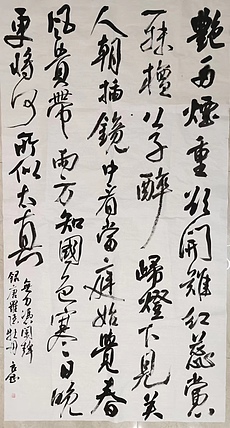 艷多煙重欲開難紅蕊當
一抹檀公子醉歸燈下見美
人朝插鏡中看當庭始覺春
風貴帶雨方知國色寒日晚
更將何所似太真
無力憑闌幹
錄唐羅隱牡丹